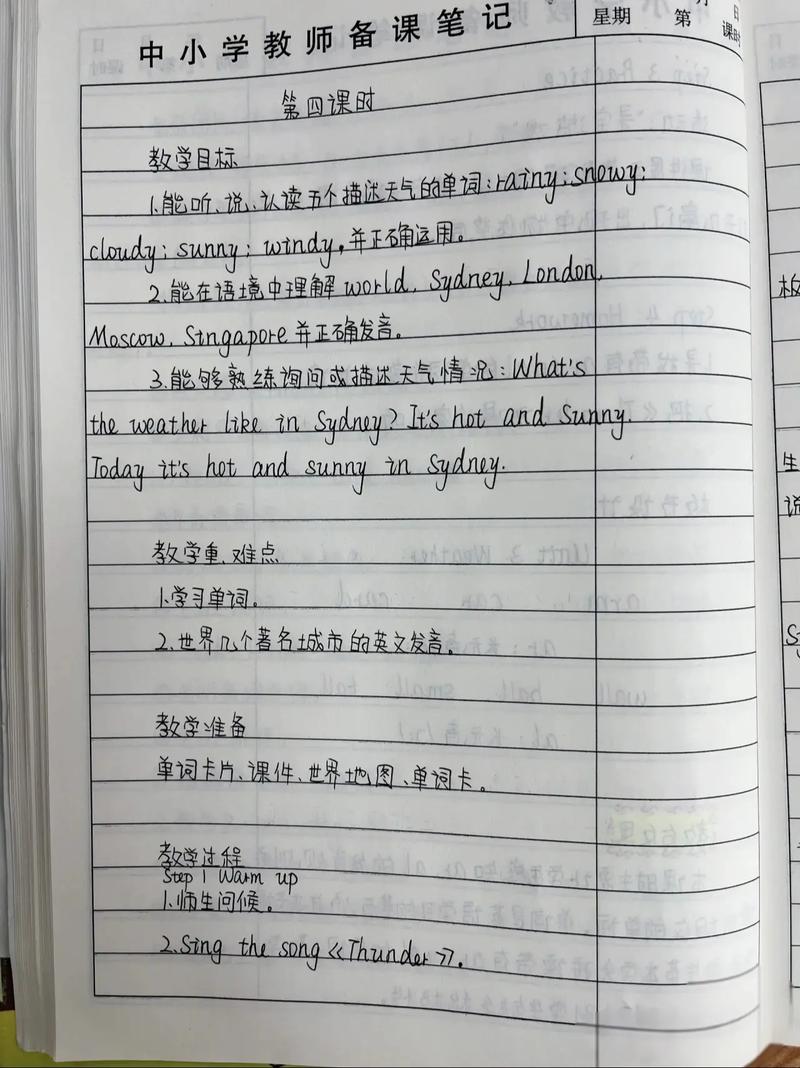 中小学教师备课笔记
星期 第 课时
第四课时
教学目标
1.能听、说、认读五个描述天气的单词：rainy；snowy；
cloudy；sunny；windy，并正确运用。
2.能在语境中理解 world, Sydney, London,
Moscow, Singapore 并正确发音。
3.能够熟练询问或描述天气情况：What's
the weather like in Sydney? It's hot and Sunny.
Today it's hot and sunny in Sydney.
教学重、难点
1.学习单词。
2.世界几个著名城市的英文发音。
教学准备
单词卡片、课件、世界地图、单词卡。
教学过程
Step 1 Warm up
1.师生问候。
2.Sing the song《Thunder》.